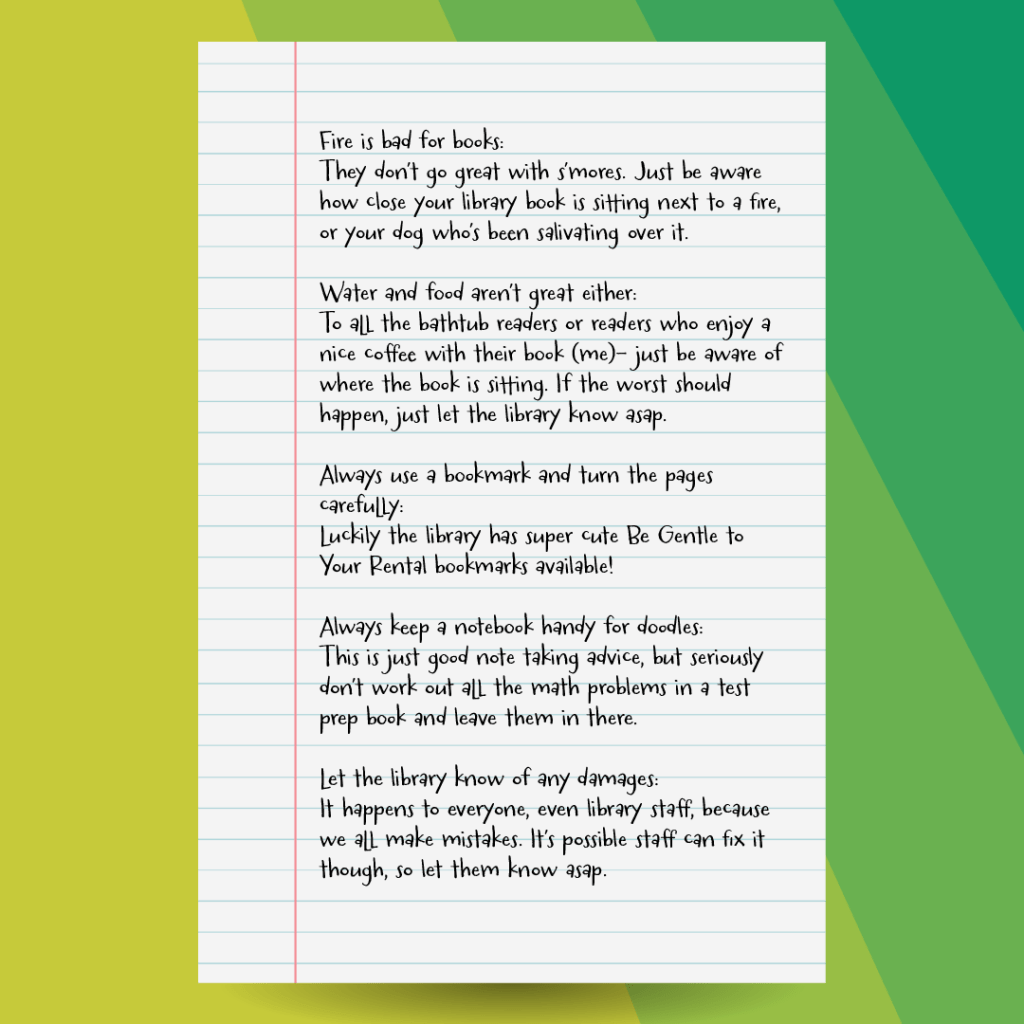 Fire is bad for books:
They don't go great with s'mores. Just be aware
how close your library book is sitting next to a fire,
or your dog who's been salivating over it.
Water and food aren't great either:
To all the bathtub readers or readers who enjoy a
nice coffee with their book (me)- just be aware of
where the book is sitting. If the worst should
happen, just let the library know asap.
Always use a bookmark and turn the pages
carefully:
Luckily the library has super cute Be Gentle to
Your Rental bookmarks available!
Always keep a notebook handy for doodles:
This is just good note taking advice, but seriously
don't work out all the math problems in a test
prep book and leave them in there.
Let the library know of any damages:
It happens to everyone, even library staff, because
we all make mistakes. It's possible staff can fix it
though, so let them know asap.